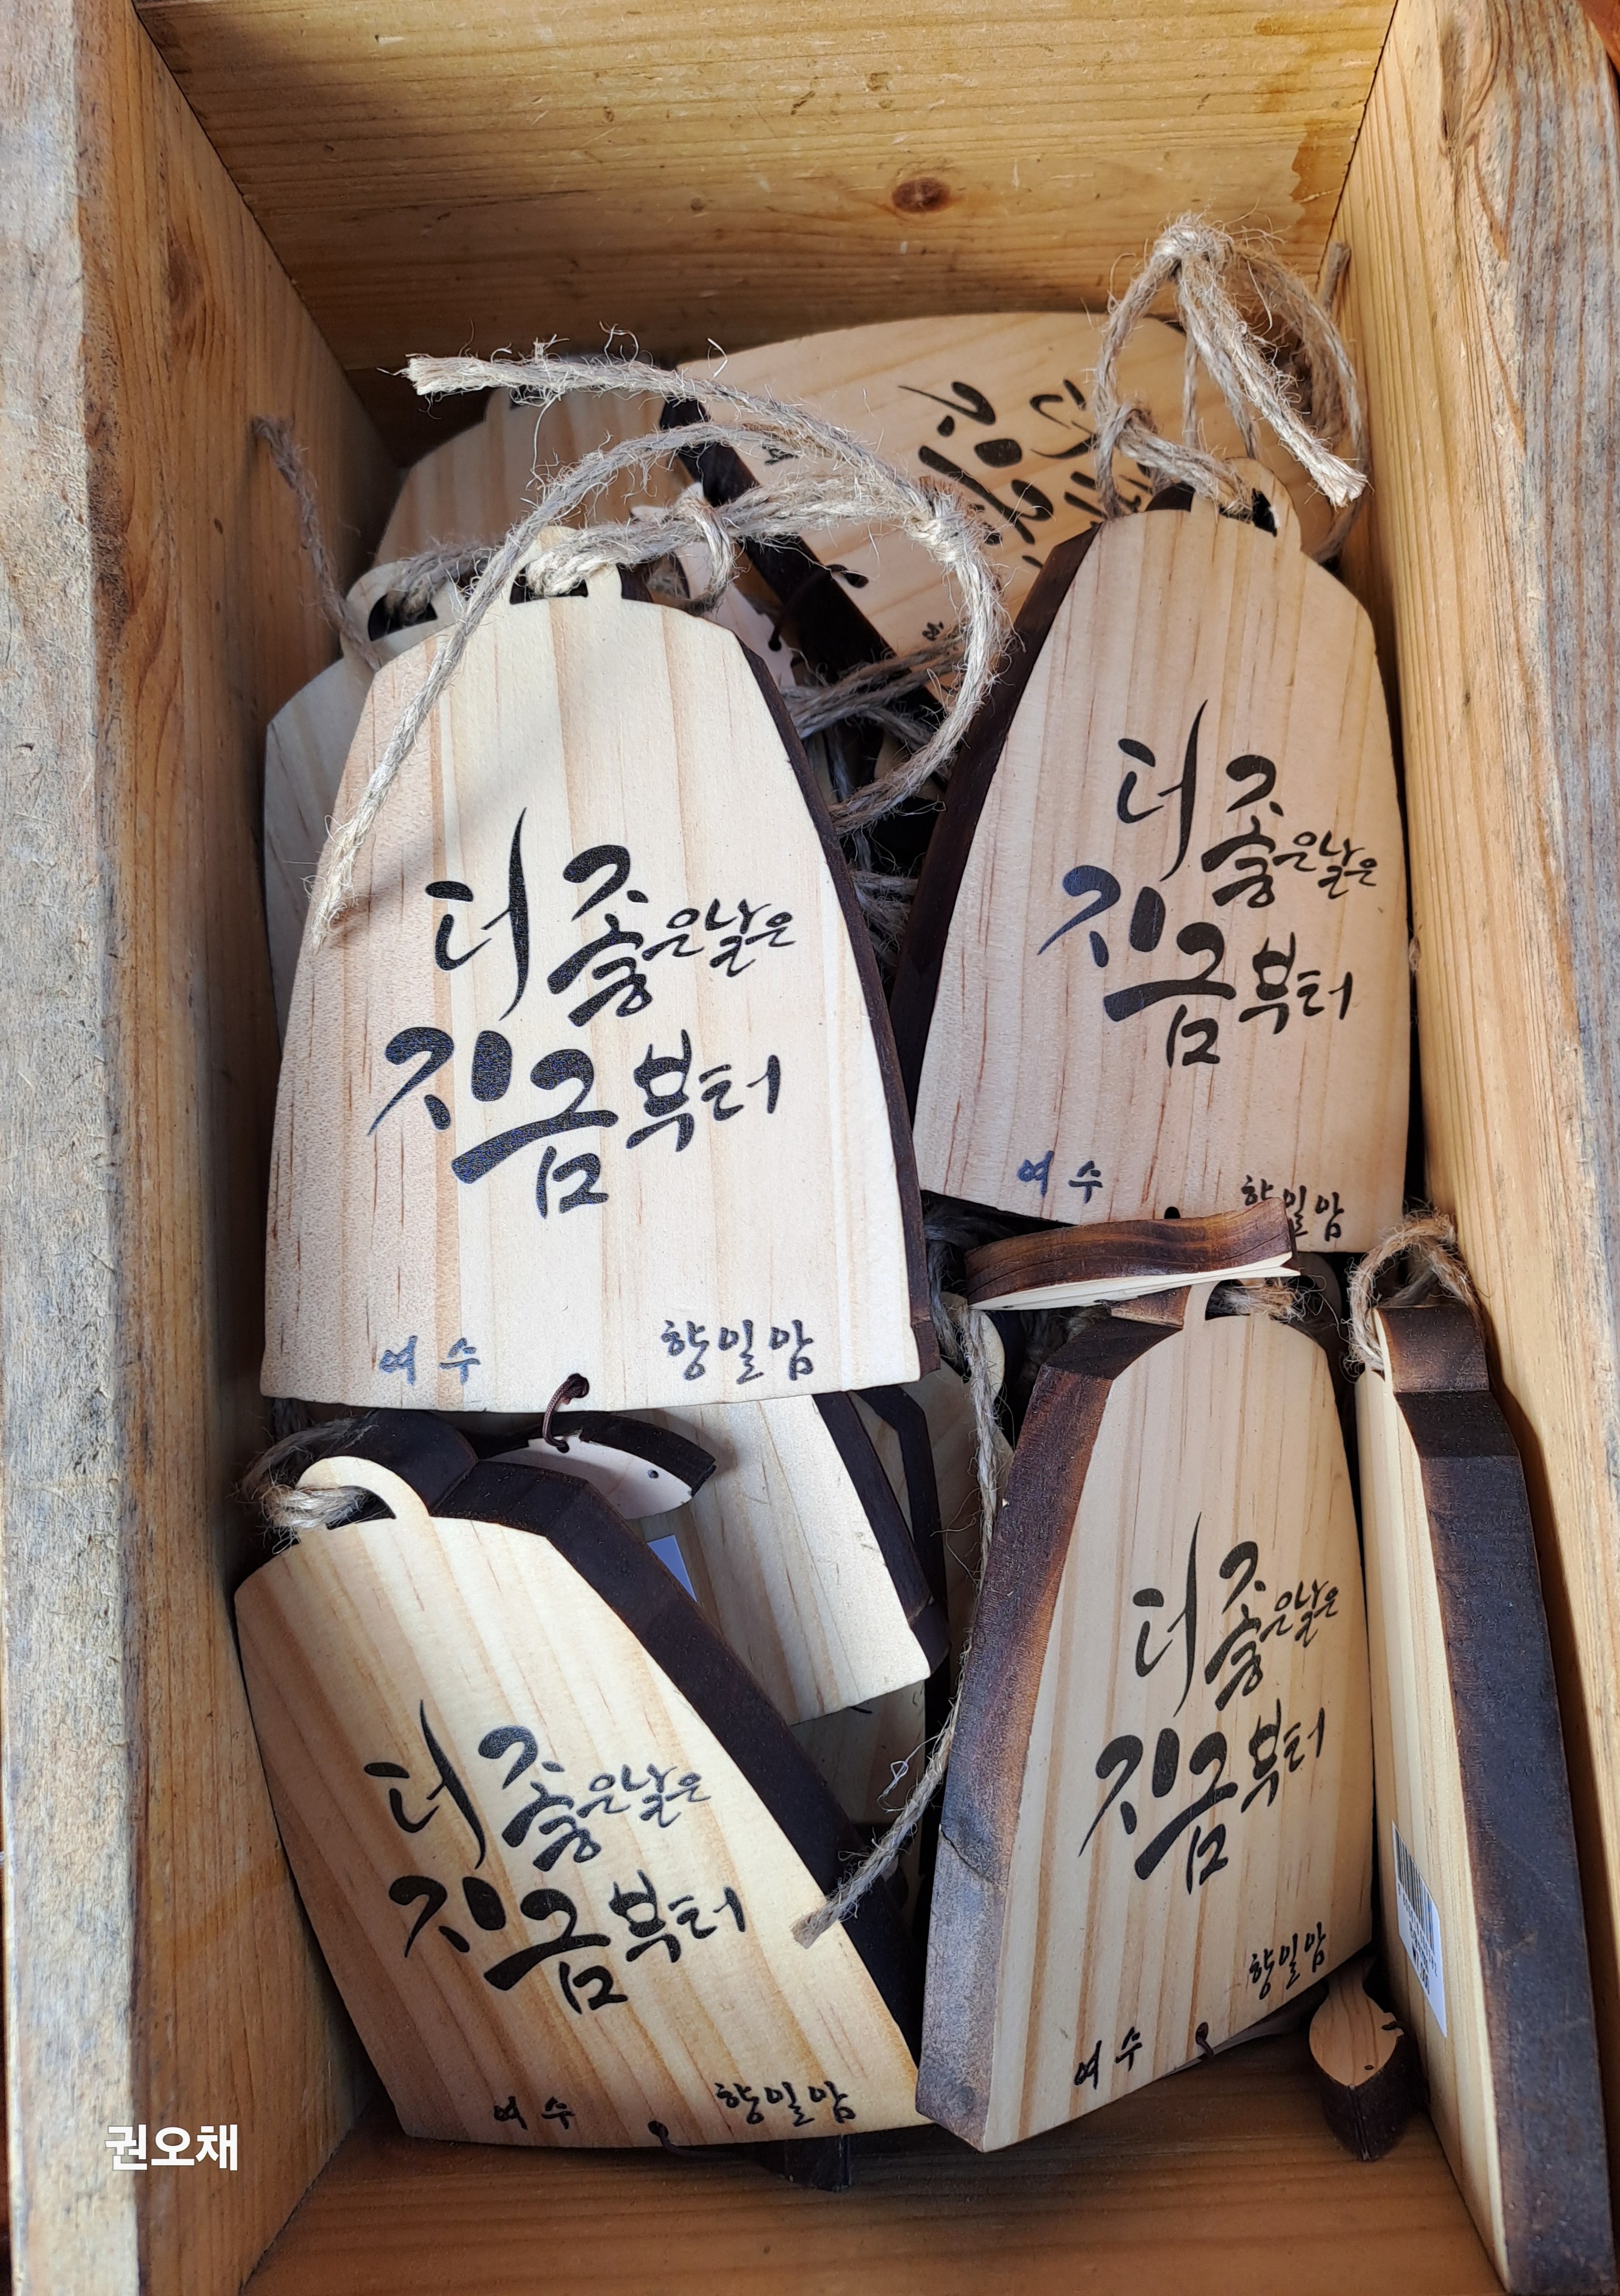 더 좋은날은
지금부터
여수 향일암
더 좋은날은
지금부터
여수 향일암
더 좋은날은
지금부터
여수 향일암
더 좋은날은
지금부터
여수 향일암
권오채